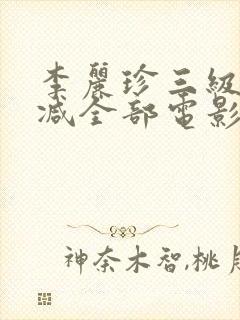 李麗珍三級
减全部電影
神奈木智,桃月